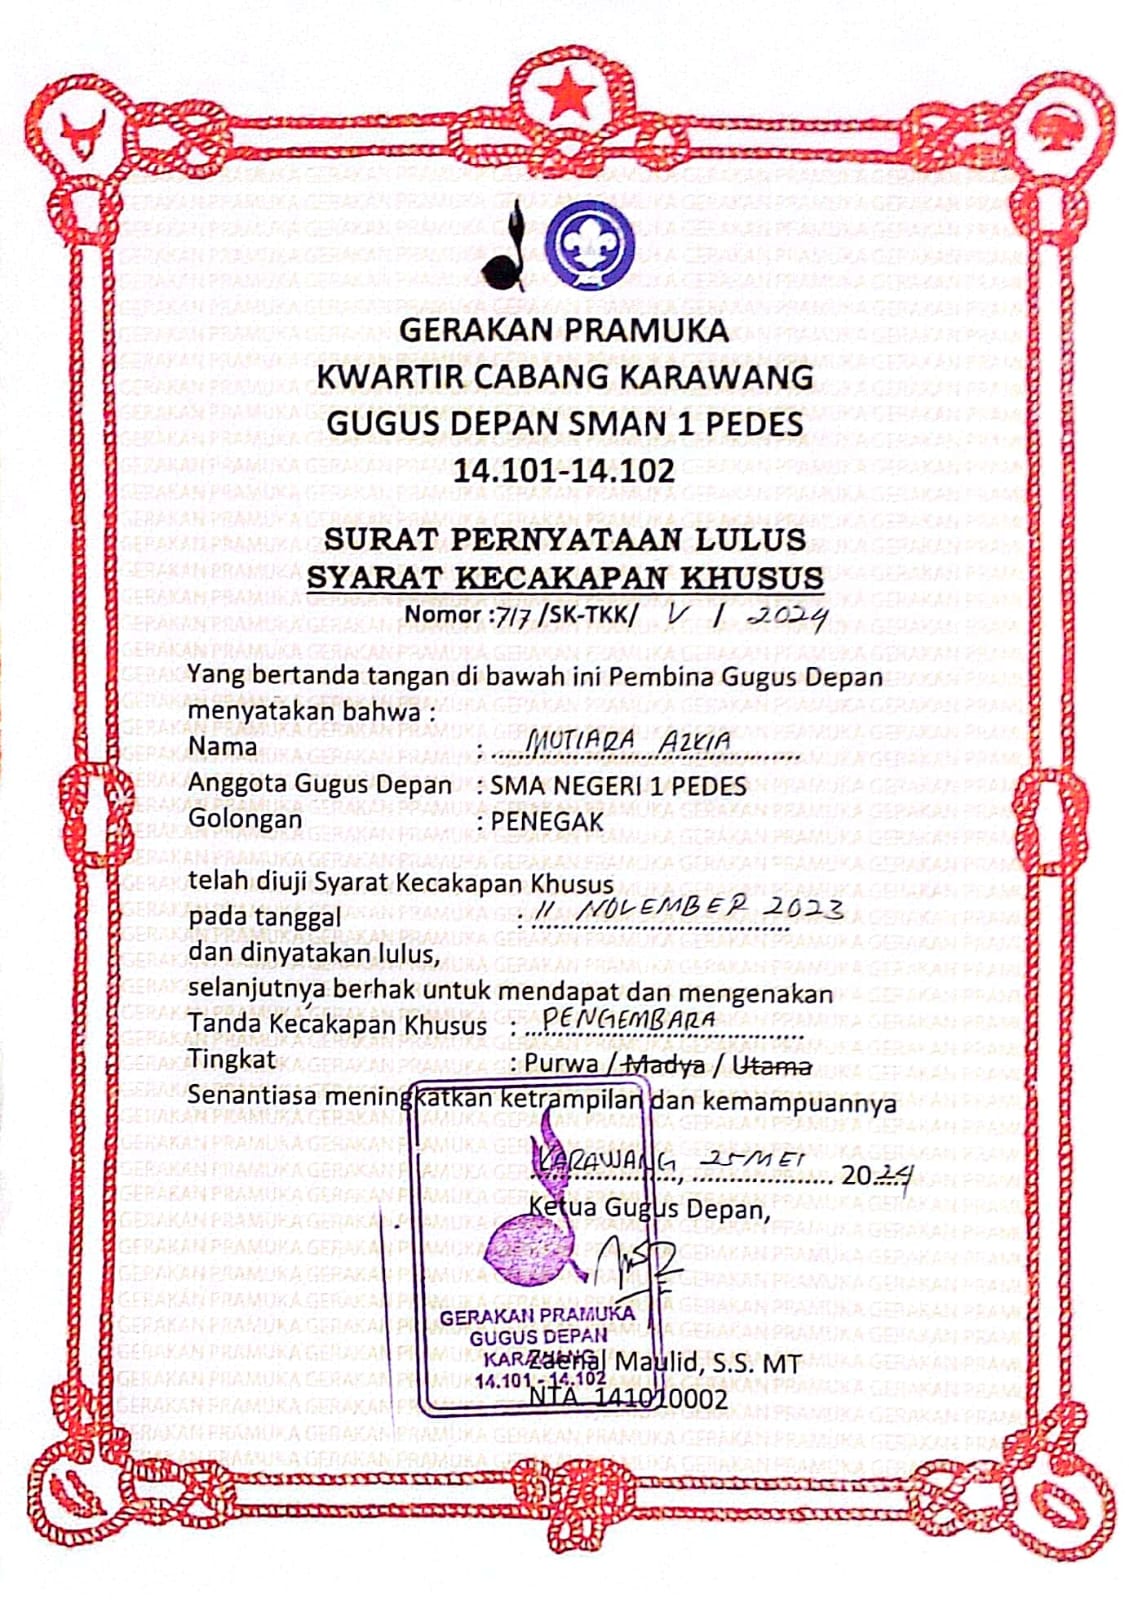 GERAKAN PRAMUKA
KWARTIR CABANG KARAWANG
GUGUS DEPAN SMAN 1 PEDES
14.101-14.102
SURAT PERNYATAAN LULUS
SYARAT KECAKAPAN KHUSUS
Nomor :717/SK-TKK/ V / 2024
Yang bertanda tangan di bawah ini Pembina Gugus Depan
menyatakan bahwa :
Nama : MUTIARA AZKIA
Anggota Gugus Depan : SMA NEGERI 1 PEDES
Golongan : PENEGAK
telah diuji Syarat Kecakapan Khusus
pada tanggal : 11 NOVEMBER 2023
dan dinyatakan lulus,
selanjutnya berhak untuk mendapat dan mengenakan
Tanda Kecakapan Khusus : PENGEMBARA
Tingkat : Purwa / Madya / Utama
Senantiasa meningkatkan ketrampilan dan kemampuannya
KARAWANG, 25 MEI 2024
Ketua Gugus Depan,
GERAKAN PRAMUKA
GUGUS DEPAN
KARAWANG
14.101 - 14.102
Zaenal Maulid, S.S. MT
NTA 141010002